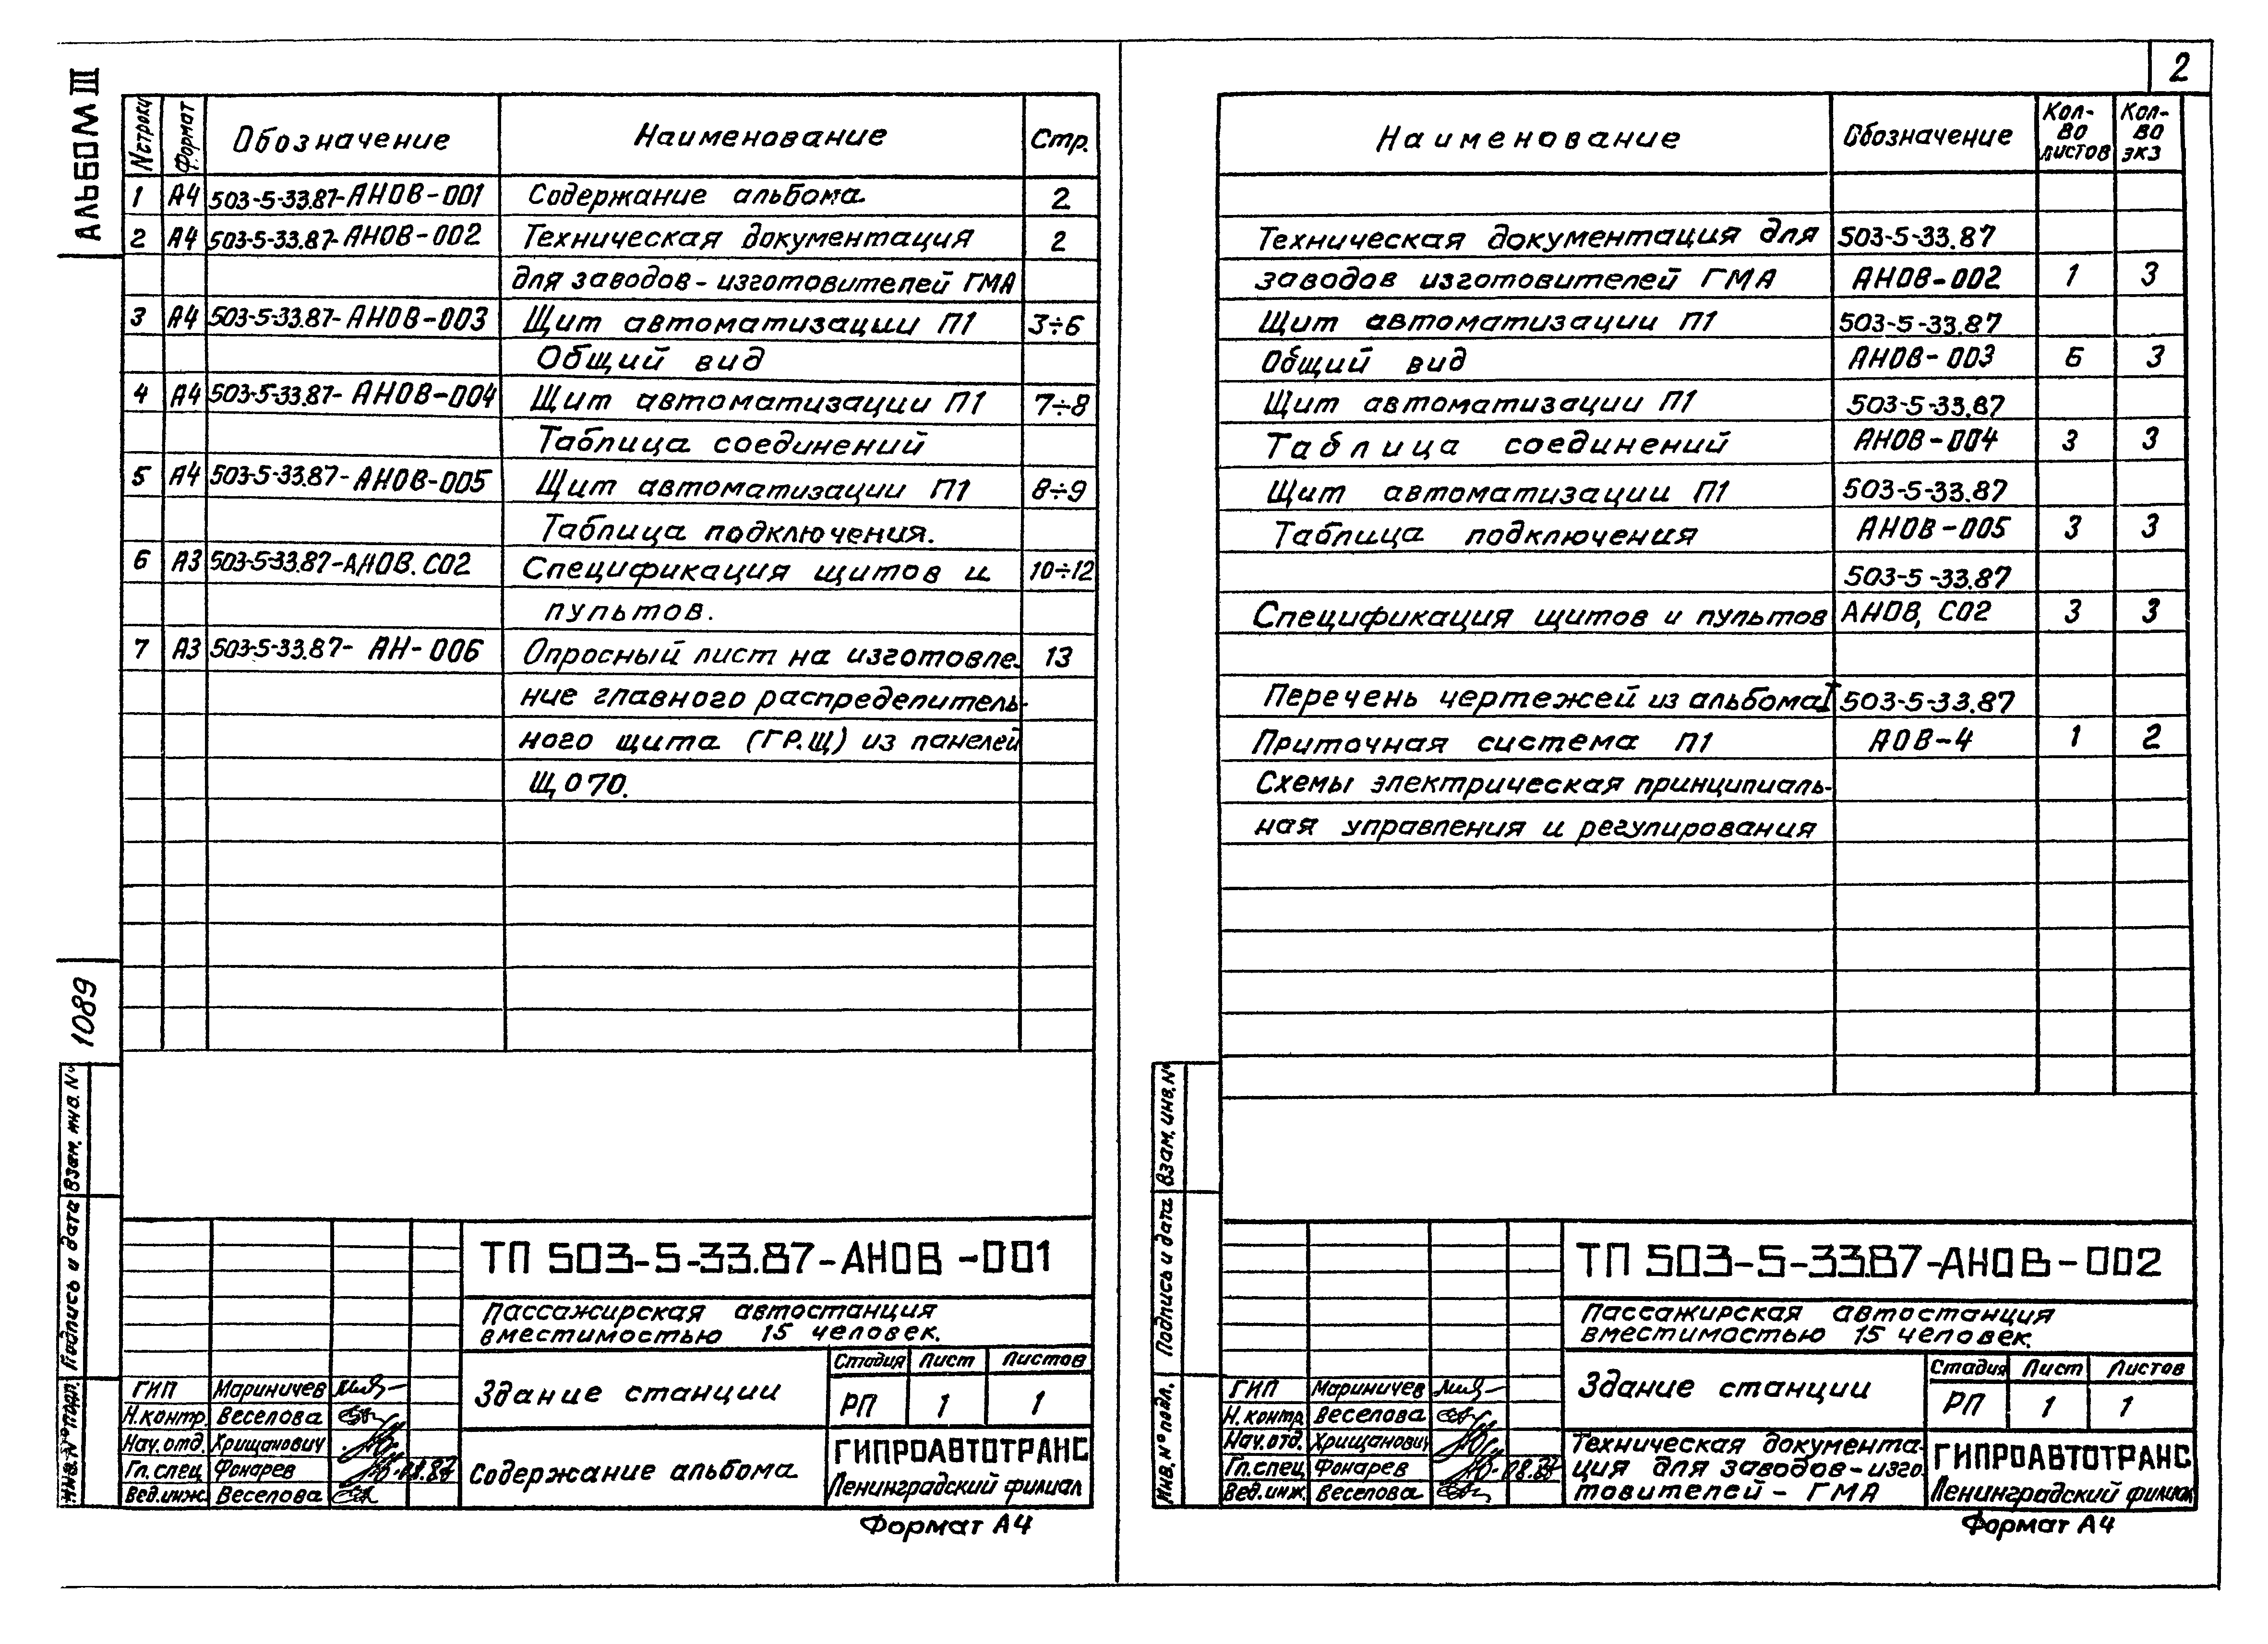 2
АЛЬБОМ III
№строки Формат Обозначение Наименование Стр.
1 А4 503-5-33.87-АНОВ-001 Содержание альбома 2
2 А4 503-5-33.87-АНОВ-002 Техническая документация 2
для заводов-изготовителей ГМА
3 А4 503-5-33.87-АНОВ-003 Щит автоматизации П1 3÷6
Общий вид
4 А4 503-5-33.87-АНОВ-004 Щит автоматизации П1 7÷8
Таблица соединений
5 А4 503-5-33.87-АНОВ-005 Щит автоматизации П1 8÷9
Таблица подключения.
6 А3 503-5-33.87-АНОВ.С02 Спецификация щитов и 10÷12
пультов.
7 А3 503-5-33.87-АН-006 Опросный лист на изготовле- 13
ние главного распределитель-
ного щита (ГР.Щ) из панелей
ЩО70.
1089
Взам. инв. №
Подпись и дата
Инв. № подл.
ТП 503-5-33.87-АНОВ-001
Пассажирская автостанция
вместимостью 15 человек.
Здание станции
Стадия Лист Листов
РП 1 1
ГИП Мариничев
Н.контр. Веселова
Нач.отд. Хрищанович
Гл.спец Фонарев
Вед.инж. Веселова
Содержание альбома
ГИПРОАВТОТРАНС
Ленинградский филиал
Формат А4
Наименование Обозначение Кол-во листов Кол-во экз
Техническая документация для 503-5-33.87
заводов изготовителей ГМА АНОВ-002 1 3
Щит автоматизации П1 503-5-33.87
Общий вид АНОВ-003 6 3
Щит автоматизации П1 503-5-33.87
Таблица соединений АНОВ-004 3 3
Щит автоматизации П1 503-5-33.87
Таблица подключения АНОВ-005 3 3
503-5-33.87
Спецификация щитов и пультов АНОВ, С02 3 3
Перечень чертежей из альбома I 503-5-33.87
Приточная система П1 АОВ-4 1 2
Схемы электрическая принципиаль-
ная управления и регулирования
Взам. инв. №
Подпись и дата
Инв. № подл.
ТП 503-5-33.87-АНОВ-002
Пассажирская автостанция
вместимостью 15 человек.
Здание станции
Стадия Лист Листов
РП 1 1
ГИП Мариничев
Н.контр Веселова
Нач.отд. Хрищанович
Гл.спец Фонарев
Вед.инж. Веселова
Техническая документа-
ция для заводов-изго-
товителей - ГМА
ГИПРОАВТОТРАНС
Ленинградский филиал
Формат А4